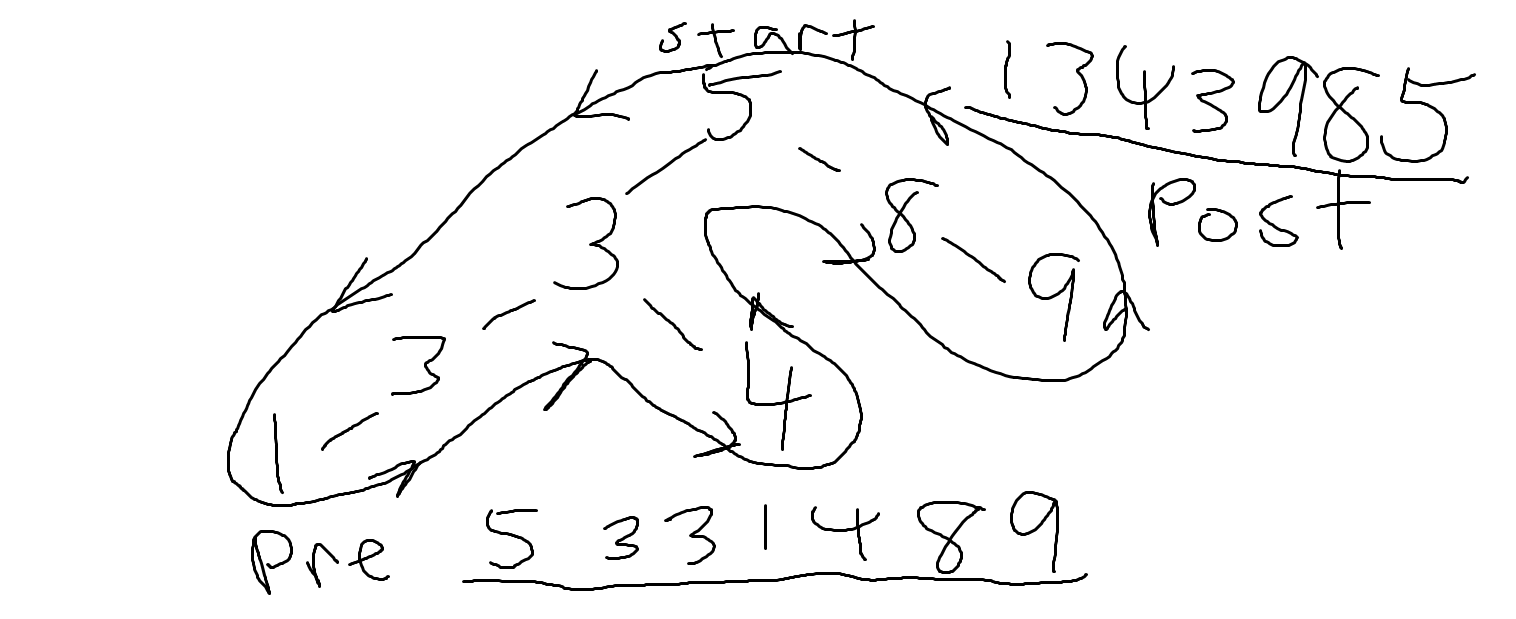 start
1343985
5
Post
3 8
9
3 4
1
Pre 5331489